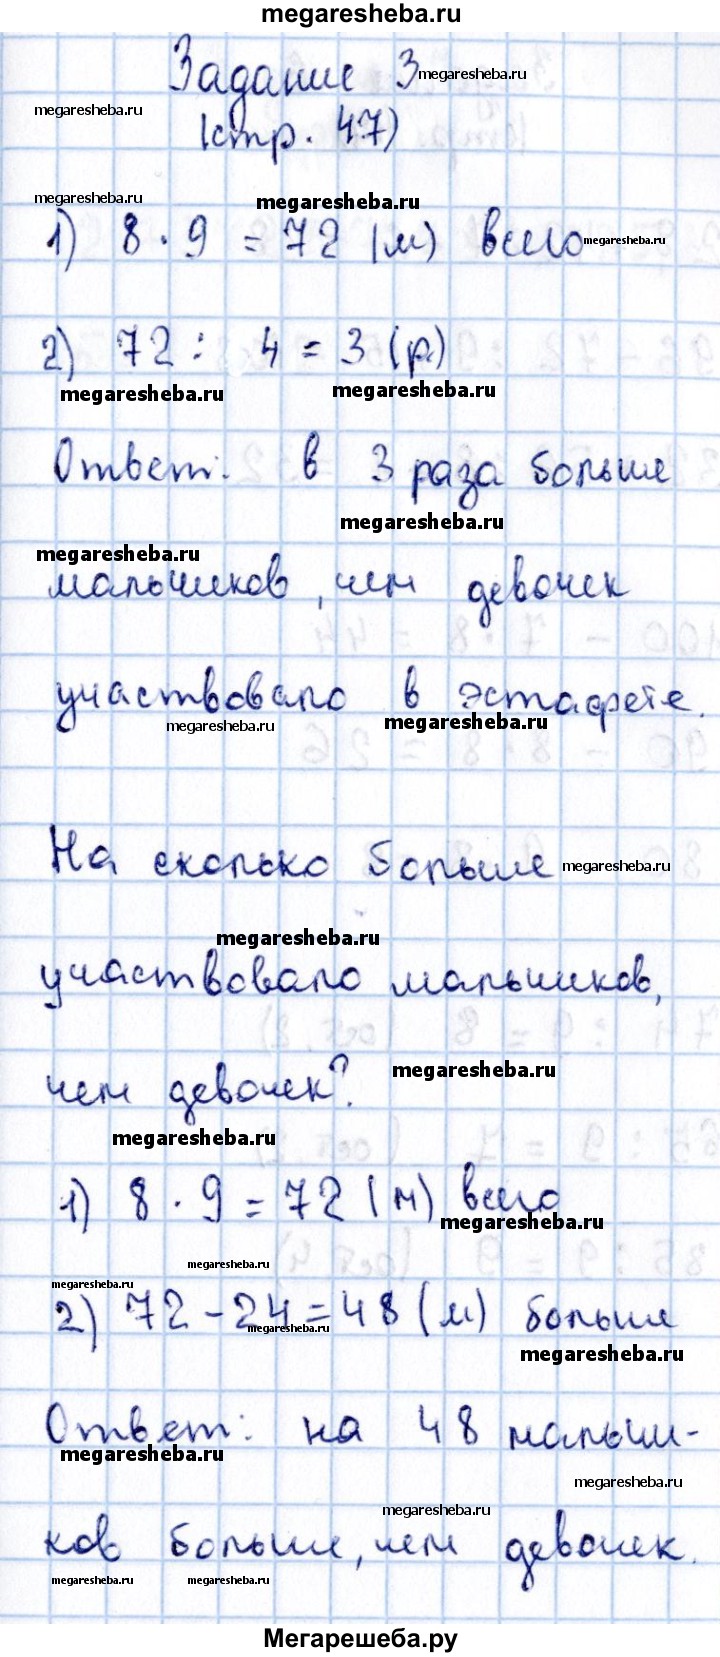 megaresheba.ru
Задание 3 megaresheba.ru
megaresheba.ru
(стр. 47)
megaresheba.ru
megaresheba.ru
1) 8 · 9 = 72 (м) всего megaresheba.ru
2) 72 : 4 = 3 (р)
megaresheba.ru megaresheba.ru
Ответ: в 3 раза больше
megaresheba.ru
megaresheba.ru
мальчиков, чем девочек
участвовало в эстафете.
megaresheba.ru megaresheba.ru
На сколько больше megaresheba.ru
megaresheba.ru
участвовало мальчиков,
чем девочек? megaresheba.ru
megaresheba.ru
1) 8 · 9 = 72 (м) всего
megaresheba.ru
megaresheba.ru
megaresheba.ru
2) 72 - 24 = 48 (м) больше
megaresheba.ru
megaresheba.ru
Ответ: на 48 мальчи-
megaresheba.ru
megaresheba.ru
megaresheba.ru
ков больше, чем девочек.
megaresheba.ru megaresheba.ru
Мегарешеба.ру